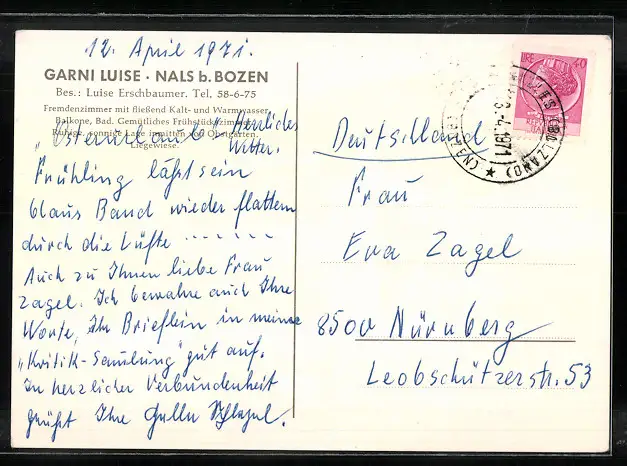 12. April 1971.
GARNI LUISE · NALS b. BOZEN
Bes.: Luise Erschbaumer. Tel. 58-6-75
Fremdenzimmer mit fließend Kalt- und Warmwasser,
Balkone, Bad. Gemütliches Frühstückszimmer.
Ruhige, sonnige Lage inmitten von Obstgärten.
Liegewiese.
"Osterurlaub! Herrliches
Wetter.
Frühling läßt sein
blaus Band wieder flattern
durch die Lüfte ......
Auch zu Ihnen liebe Frau
Zagel. Ich bewahre auch Ihre
Worte, Ihr Brieflein in meiner
"Kritik-Samlung" gut auf.
In herzlicher Verbundenheit
grüßt Ihre
LIRE 40
(BOLZANO) ★ (NALS)
-4-1971
Deutschland
Frau
Eva Zagel
8500 Nürnberg
Leobschützerstr. 53